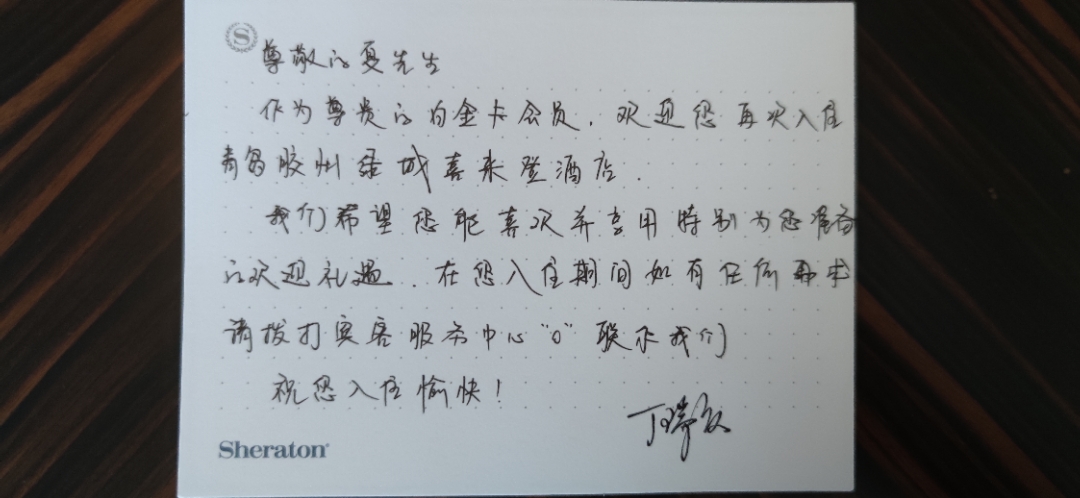 S
尊敬的夏先生
作为尊贵的白金卡会员,欢迎您再次入住
青岛胶州绿城喜来登酒店.
我们希望您能喜欢并享用特别为您准备
的欢迎礼遇.在您入住期间如有任何要求
请拨打宾客服务中心"0"联系我们
祝您入住愉快!
丁
Sheraton